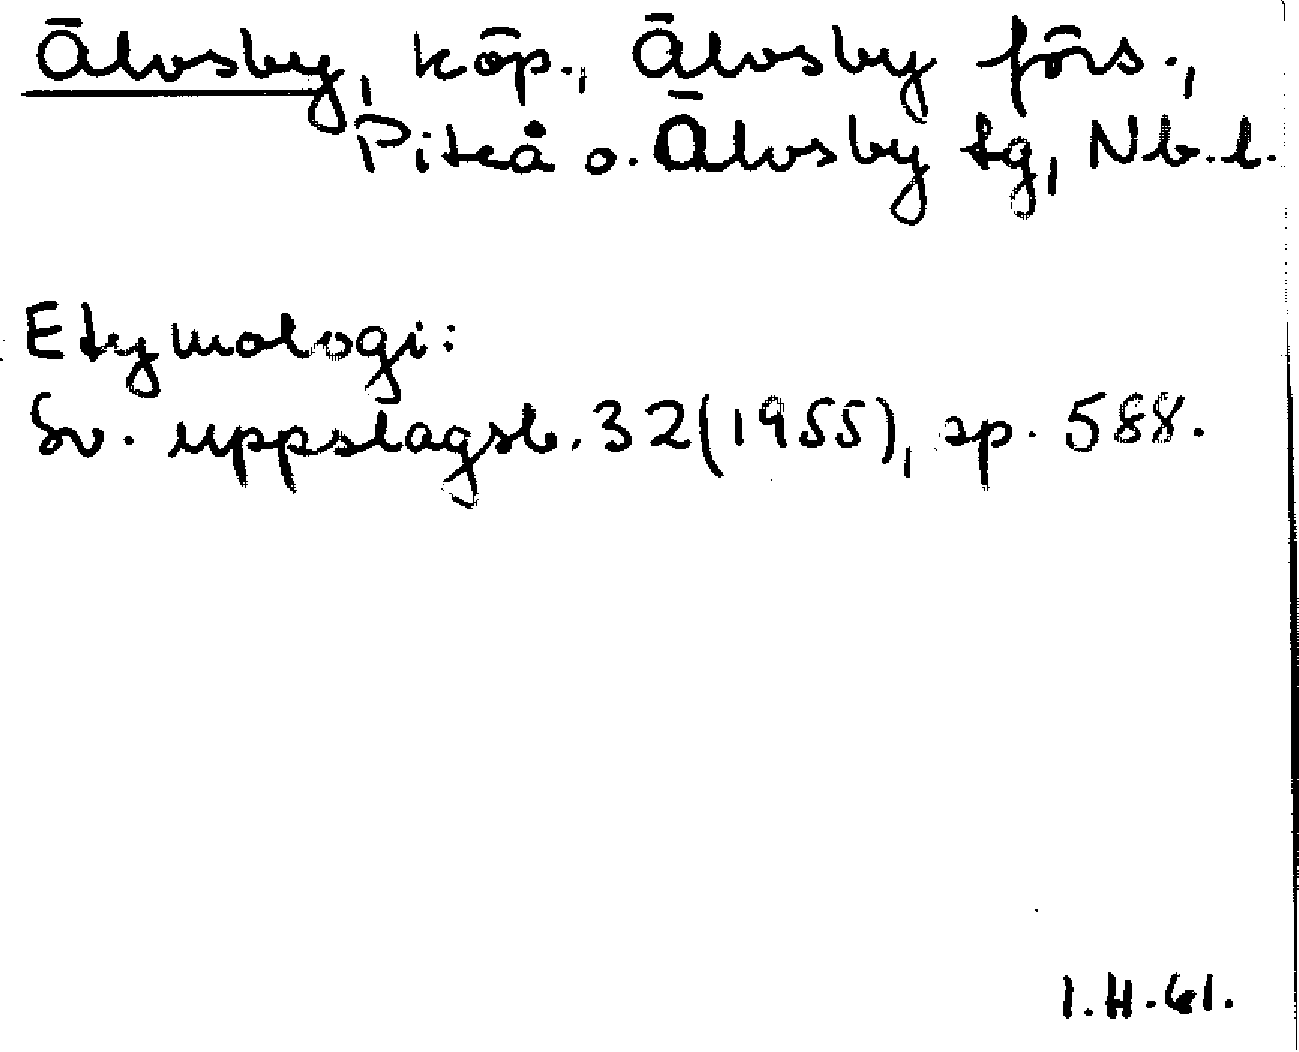 Älvsby, köp., Älvsby förs.,
Piteå o. Älvsby tg, Nb. l.
Etymologi:
Sv. uppslagsb. 32 (1955), sp. 588.
I.H.61.